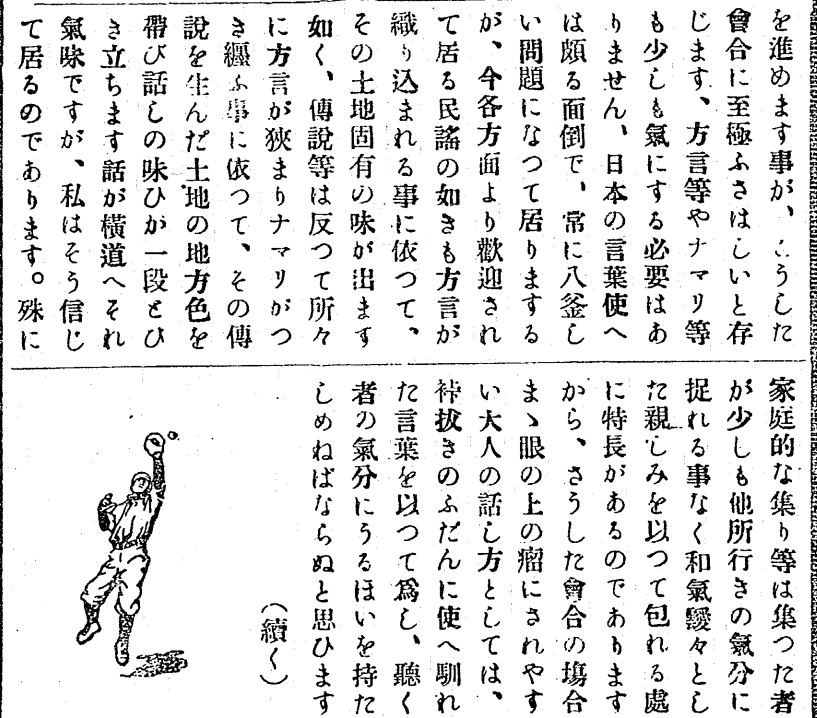 を進めます事が、こうした
會合に至極ふさはしいと存
じます、方言等やナマリ等
も少しも氣にする必要はあ
りません、日本の言葉使へ
は頗る面倒で、常に八釜し
い問題になつて居りまする
が、今各方面より歡迎され
て居る民謠の如きも方言が
織り込まれる事に依つて、
その土地固有の味が出ます
如く、傳說等は反つて所々
に方言が狹まりナマリがつ
き纒ふ事に依つて、その傳
說を生んだ土地の地方色を
帶び話しの味ひが一段とひ
き立ちます話が横道へそれ
氣味ですが、私はそう信じ
て居るのであります。殊に
家庭的な集り等は集つた者
が少しも他所行きの氣分に
捉れる事なく和氣靉々とし
た親しみを以つて包れる處
に特長があるのであります
から、さうした會合の塲合
まゝ眼の上の瘤にされやす
い大人の話し方としては、
裃拔きのふだんに使へ馴れ
た言葉を以つて爲し、聽く
者の氣分にうるほいを持た
しめねばならぬと思ひます
（續く）